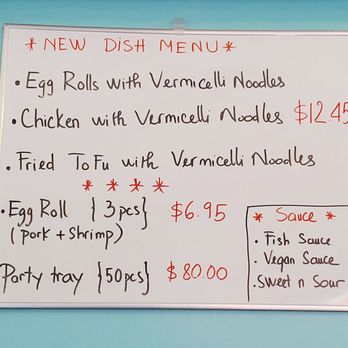 * NEW DISH MENU *
• Egg Rolls with Vermicelli Noodles
• Chicken with Vermicelli Noodles $12.45
• Fried ToFu with Vermicelli Noodles
* * * *
• Egg Roll {3pcs} $6.95
(pork + Shrimp)
Party tray {50pcs} $80.00
* Sauce *
• Fish Sauce
• Vegan Sauce
• Sweet n Sour